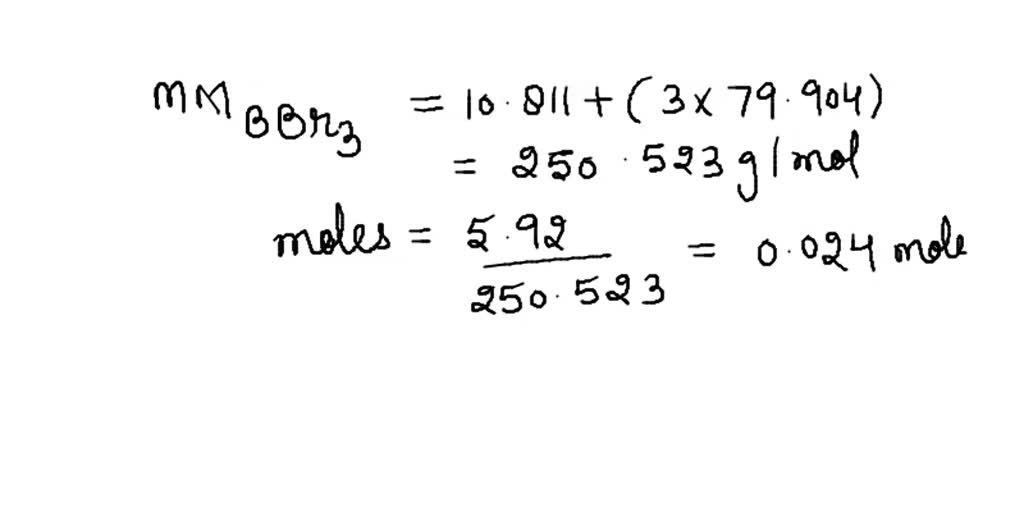 MM BBr3 = 10.811 + (3 x 79.904)
= 250.523 g/mol
moles = 5.92 / 250.523 = 0.024 mole